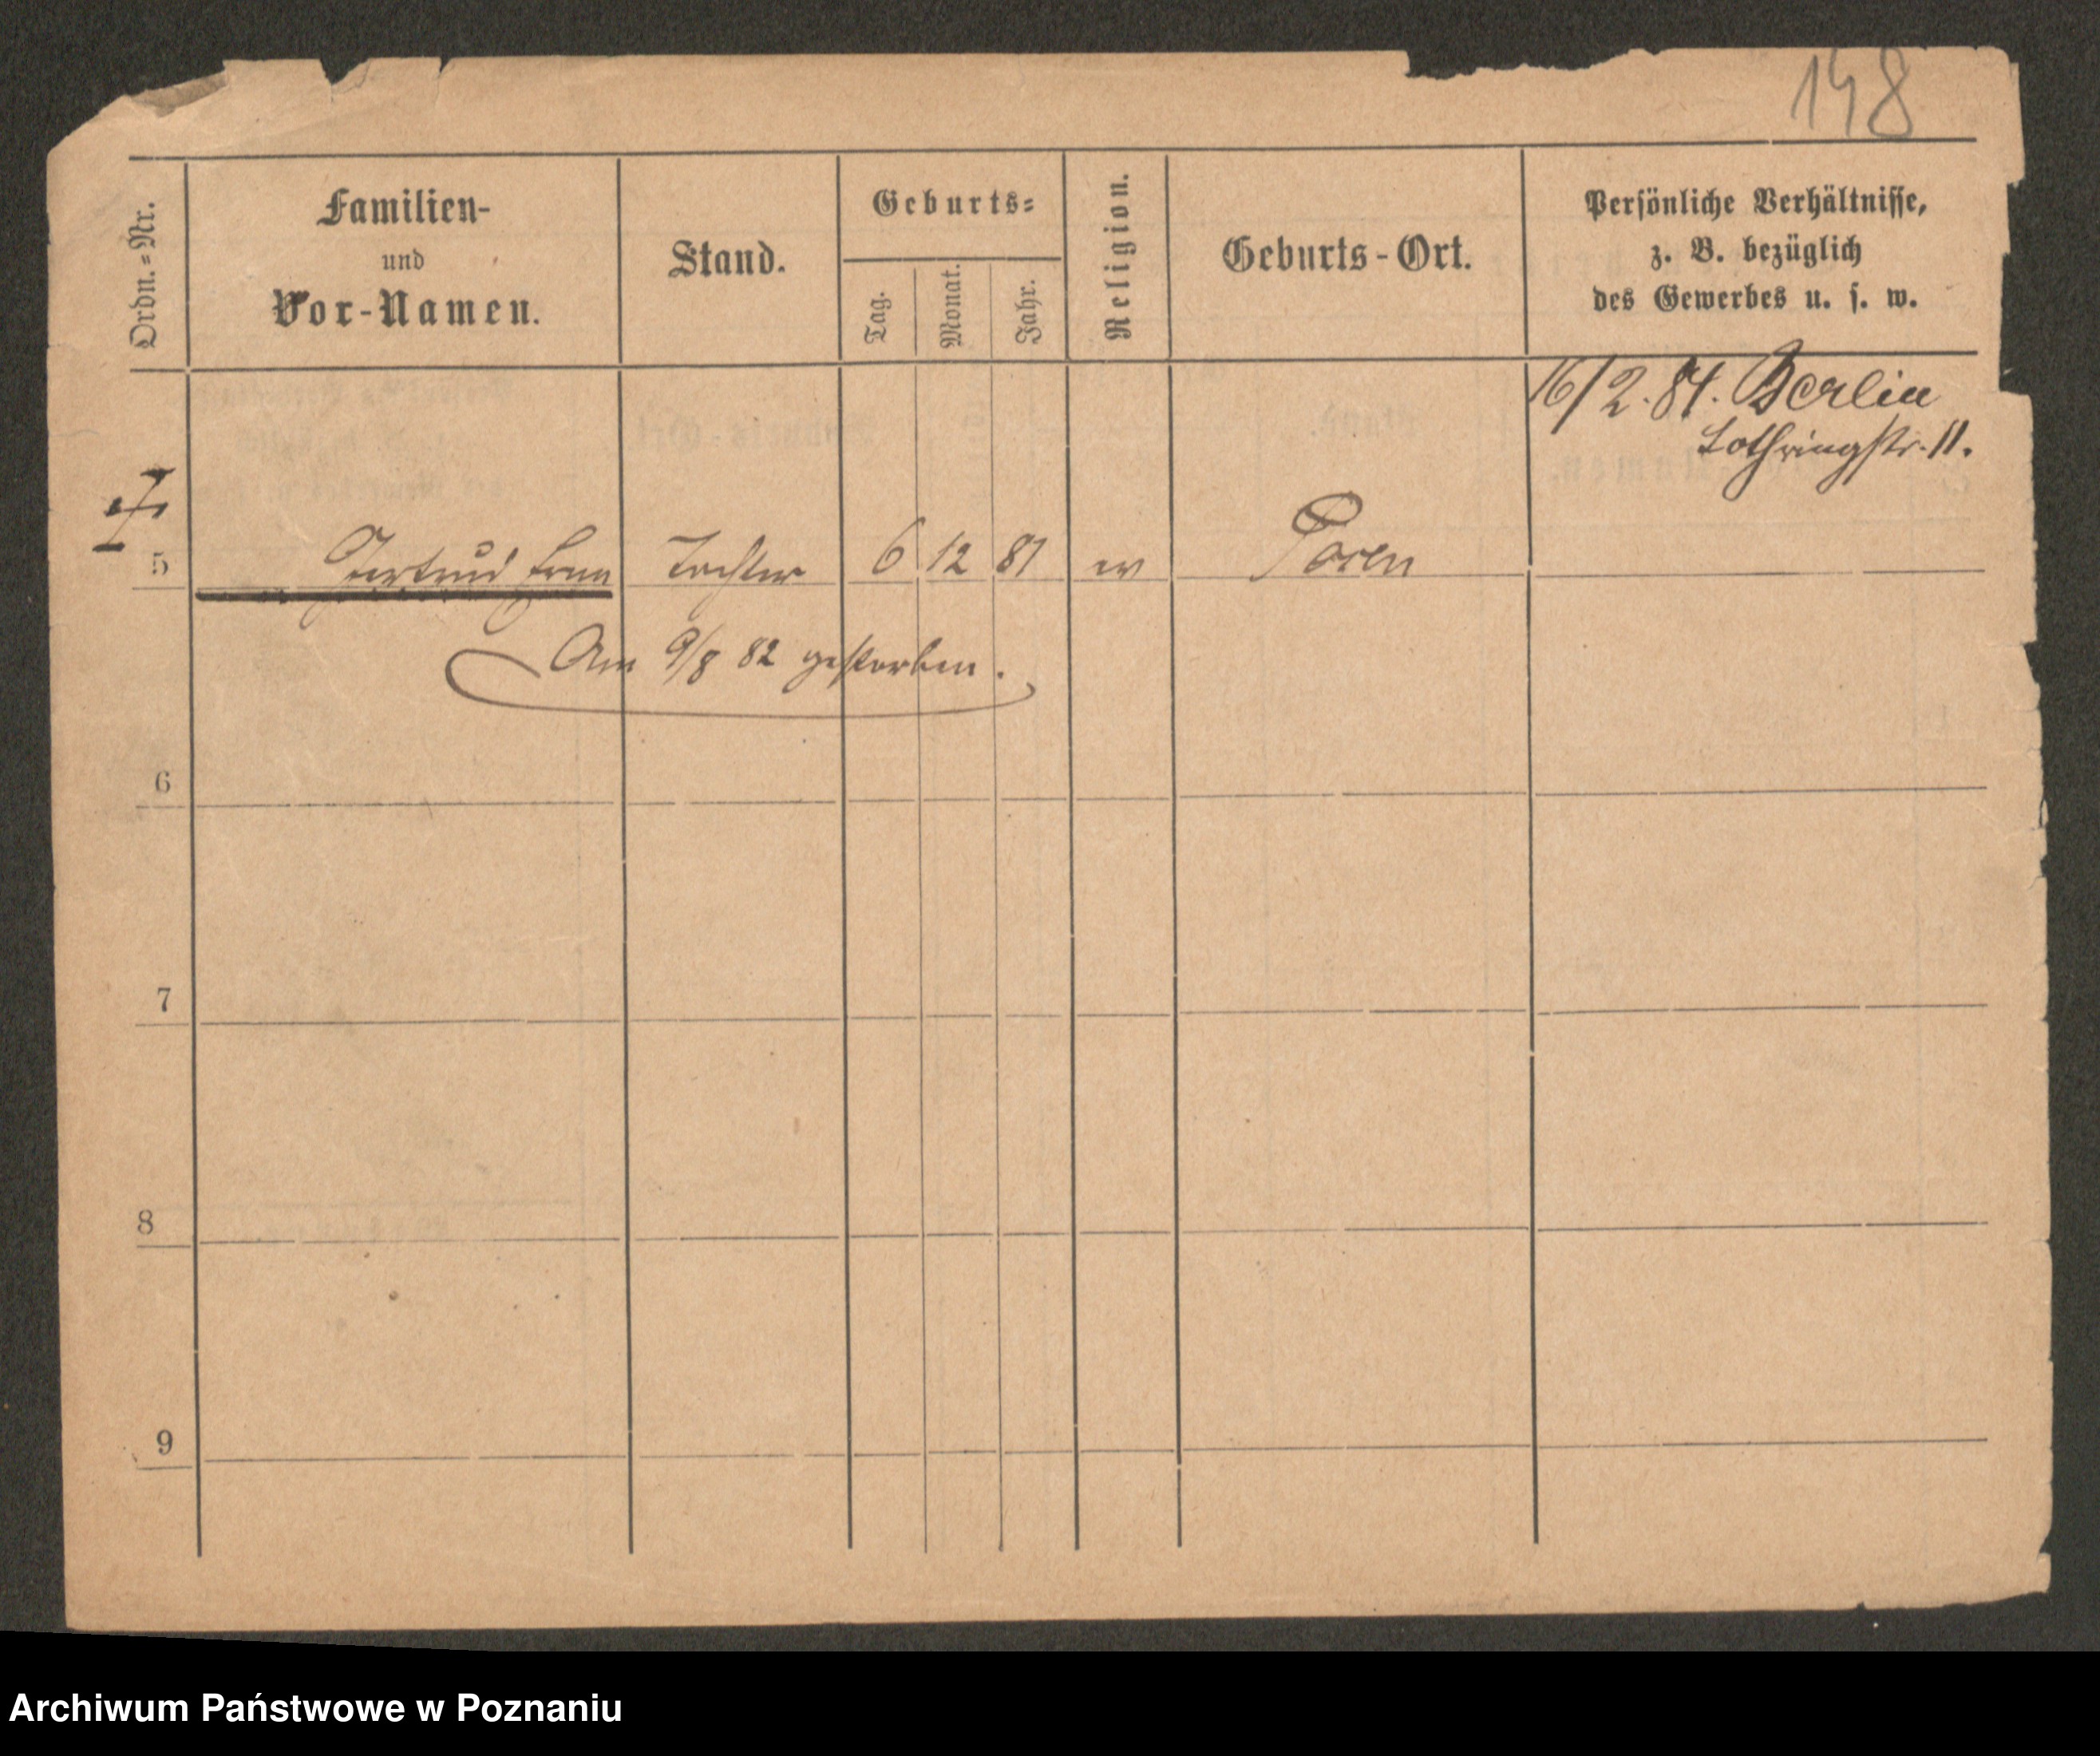 148
Ordn.-Nr.
Familien-
und
Vor-Namen.
Stand.
Geburts-
Tag.
Monat.
Jahr.
Religion.
Geburts-Ort.
Persönliche Verhältnisse,
z. B. bezüglich
des Gewerbes u. s. w.
16/2.84. Berlin
Lothringstr. 11.
5 Gertrud Erna Tochter 6 12 81 ev Posen
Am 9/8 82 gestorben.
6
7
8
9
Archiwum Państwowe w Poznaniu